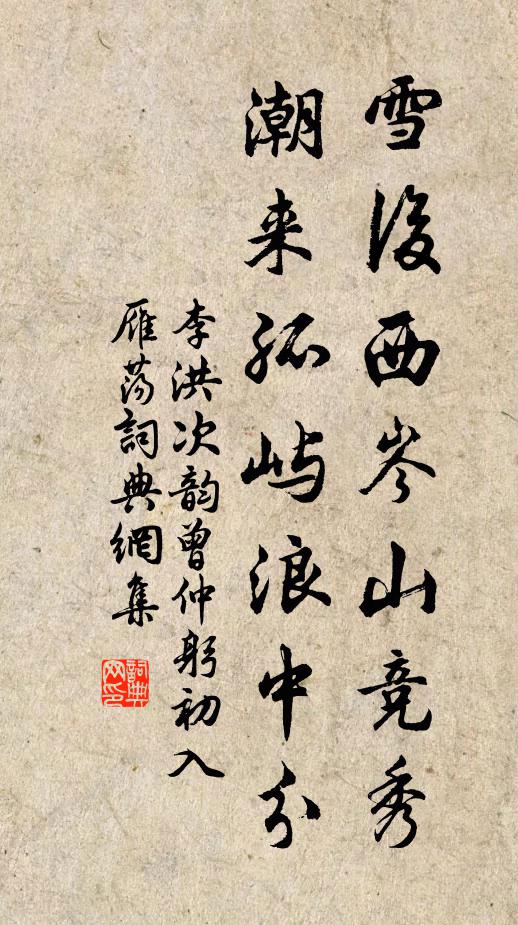 雪後西岑山竞秀
潮来孤屿浪中分
李洪次韵曾仲躬初入
雁荡詞典網集
詞典网印